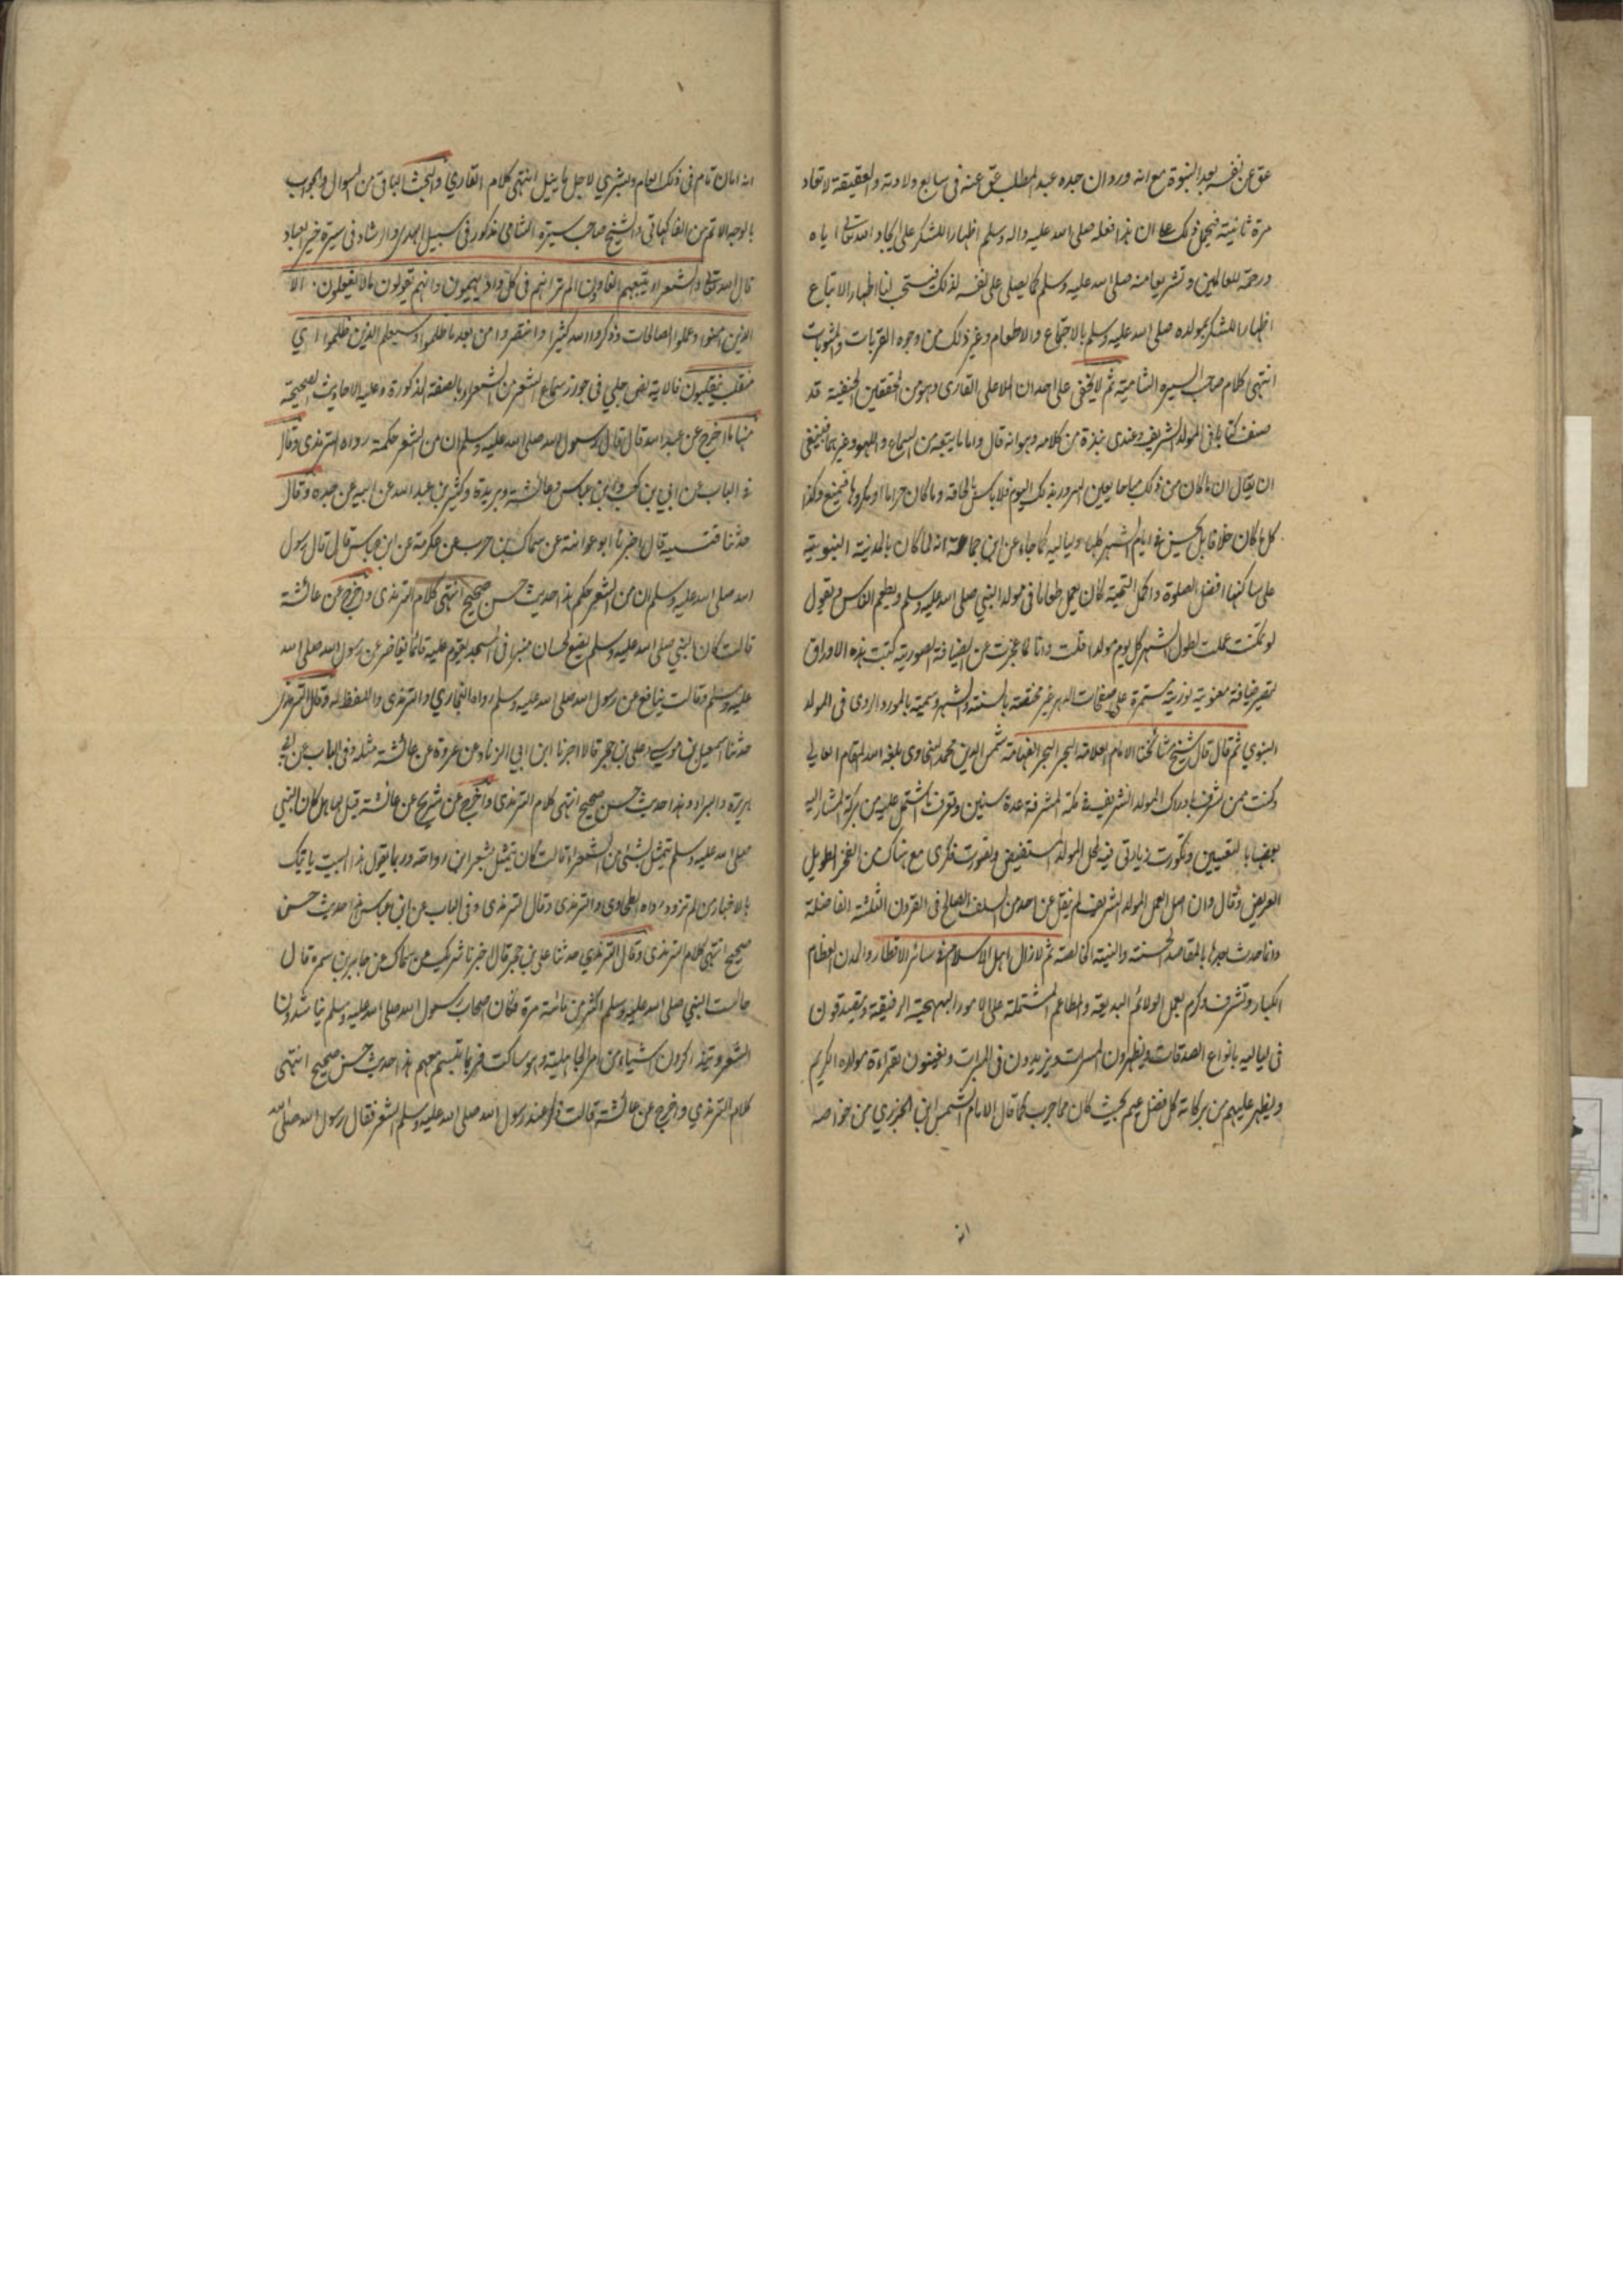 عق عن نفسه بعد النبوة مع انه ورد ان جده عبد المطلب عق عنه فى سابع ولادته والعقيقة لا تعاد
مرة ثانية فيحمل ذلك على ان هذا فعله صلى الله عليه واله وسلم اظهارا للشكر على ايجاد الله تعالى اياه
ورحمة للعالمين وتشريعا منه صلى الله عليه وسلم كما يصلى على نفسه لذلك فيستحب لنا اظهار الاتباع
اظهارا للشكر بمولده صلى الله عليه وسلم بالاجتماع والاطعام وغير ذلك من وجوه القربات والمثوبات
انتهى كلام صاحب السيرة الشامية ثم لا يخفى على احد ان الملا على القارى وهو من المحققين الحنفية قد
صنف كتابا فى المولد الشريف وعندى نبذة من كلامه وهو انه قال واما ما يتبعه من السماع واللهو وغيرهما فينبغى
ان يقال ان ما كان من ذلك مباحا يعين لسرور بذلك اليوم فلا باس بالحاقه وما كان حراما او مكروها فيمنع وكذا
كل ما كان خلافا بل يحسن فى ايام الشهر كلها ولياليه كما جاء عن ابن جماعة انه لما كان بالمدينة النبوية
على ساكنها افضل الصلوة واكمل التحية كان يعمل طعاما فى مولد النبي صلى الله عليه وسلم ويطعم الناس ويقول
لو تمكنت عملت لطول الشهر كل يوم مولدا قلت وانا لما عجزت عن الضيافة الصورية كتبت هذه الاوراق
لتصير ضيافة معنوية نورية مستمرة على صفحات الدهر غير مختصة بالسنة والشهر وسميته بالمورد الروى فى المولد
النبوي ثم قال قال شيخ مشائخنا الامام العلامة البحر الفهامة شمس الدين محمد السخاوى بلغه الله المقام العالي
وكنت ممن تشرف بادراك المولد الشريف فى مكة المشرفة عدة سنين وتعرف ما اشتمل عليه من بركة المشار اليه
بعضها بالتعيين وتكررت زيارتى فيه لمحل المولد المستفيض وتصورت فكرى مع هناك من الفخر الطويل
العريض وقال وان اصل العمل المولد الشريف لم ينقل عن احد من السلف الصالح فى القرون الثلثة الفاضلة
وانما حدث بعدها بالمقاصد الحسنة والنية الخالصة ثم لا زال اهل الاسلام فى سائر الاقطار والمدن العظام
الكبار وتشرف وكرم بعمل الولائم البديعة والمطاعم المشتملة على الامور البهيجة الرفيعة ويتصدقون
فى لياليه بانواع الصدقات ويظهرون المسرات ويزيدون فى المبرات ويعتنون بقراءة مولده الكريم
ويظهر عليهم من بركاته كل فضل عميم بحيث كان مما جرب كما قال الامام الشمس ابن الجزري من خواصه
انه
انه امان تام فى ذلك العام وبشري لاجل ما ينيل انتهى كلام القاري والبحث الباقى من السوال والجواب
بالوجه الاتم من الفاكهانى والشيخ صاحب سيرة الشامى مذكور فى سبيل الهدى والرشاد فى سيرة خير العباد
قال الله تعالى والشعراء يتبعهم الغاون الم تر انهم فى كل واد يهيمون وانهم يقولون ما لا يفعلون الا
الذين امنوا وعملوا الصالحات وذكروا الله كثيرا وانتصروا من بعد ما ظلموا وسيعلم الذين ظلموا اي
منقلب ينقلبون فالاية نص جلي فى جواز سماع الشعر من الشعراء بالصفة المذكورة وعليه الاحاديث الصحيحة
منها ما اخرج عن عبد الله قال قال رسول الله صلى الله عليه وسلم ان من الشعر حكمة رواه الترمذى وقال
فى الباب عن ابي بن كعب وابن عباس وعائشة وبريدة وكثير بن عبد الله عن ابيه عن جده وقال
حدثنا قتيبة قال اخبرنا ابو عوانة عن سماك بن حرب عن عكرمة عن ابن عباس قال قال رسول
الله صلى الله عليه وسلم ان من الشعر حكم هذا حديث حسن صحيح انتهى كلام الترمذى واخرج عن عائشة
قالت كان النبي صلى الله عليه وسلم يضع لحسان منبرا فى المسجد يقوم عليه قائما يفاخر عن رسول الله صلى الله
عليه وسلم وقالت ينافح عن رسول الله صلى الله عليه وسلم رواه البخاري والترمذى واللفظ له وقال الترمذى
حدثنا اسمعيل بن موسى وعلى بن حجر قالا اخبرنا ابن ابي الزناد عن عروة عن عائشة مثله وفى الباب عن ابى
هريرة والبراء وهذا حديث حسن صحيح انتهى كلام الترمذى واخرج عن شريح عن عائشة قيل لها هل كان النبي
صلى الله عليه وسلم يتمثل بشئ من الشعر قالت كان يتمثل بشعر ابن رواحة وربما يقول هذا البيت ياتيك
بالاخبار من لم تزود رواه الطحاوى والترمذى وقال الترمذى وفى الباب عن ابن عباس هذا حديث حسن
صحيح انتهى كلام الترمذى وقال الترمذي حدثنا على بن حجر قال اخبرنا شريك عن سماك عن جابر بن سمرة قال
جالست النبي صلى الله عليه وسلم اكثر من مائة مرة فكان اصحاب رسول الله صلى الله عليه وسلم يتناشدون
الشعر ويتذاكرون اشياء من امر الجاهلية وهو ساكت فربما يتبسم معهم هذا حديث حسن صحيح انتهى
كلام الترمذي واخرج عن عائشة قالت ذكر عند رسول الله صلى الله عليه وسلم الشعر فقال رسول الله صلى الله